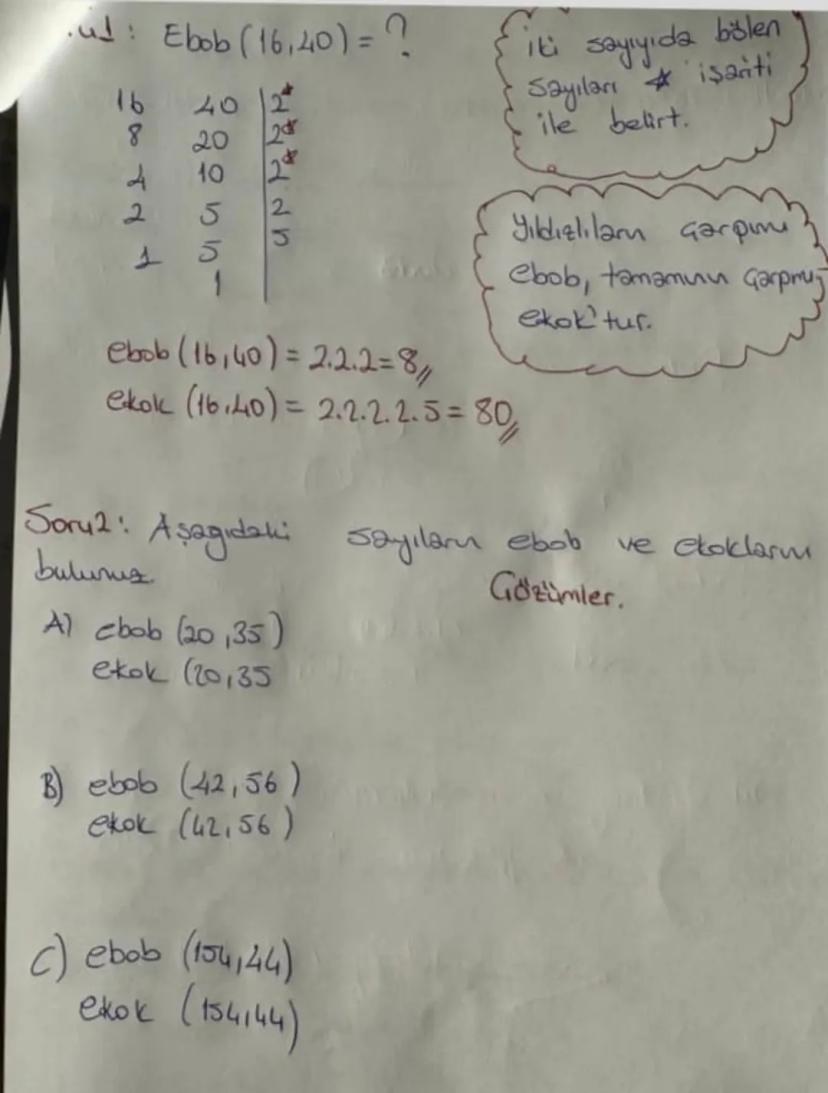 Ebob (16,40) = ?
iki sayıyıda bölen
sayıları * işariti
ile belirt.
16 40 2*
8 20 2*
4 10 2*
2 5 2
1 5 5
1
Yıldızlıların çarpımı
ebob, tamamının çarpımı
ekok'tur.
ebob (16,40) = 2.2.2=8//
ekok (16,40) = 2.2.2.2.5 = 80//
Soru2: Aşağıdaki sayıların ebob ve ekoklarını
bulunuz.
Çözümler.
A) ebob (20,35)
ekok (20,35
B) ebob (42,56)
ekok (42,56)
C) ebob (154,44)
ekok (154,44)